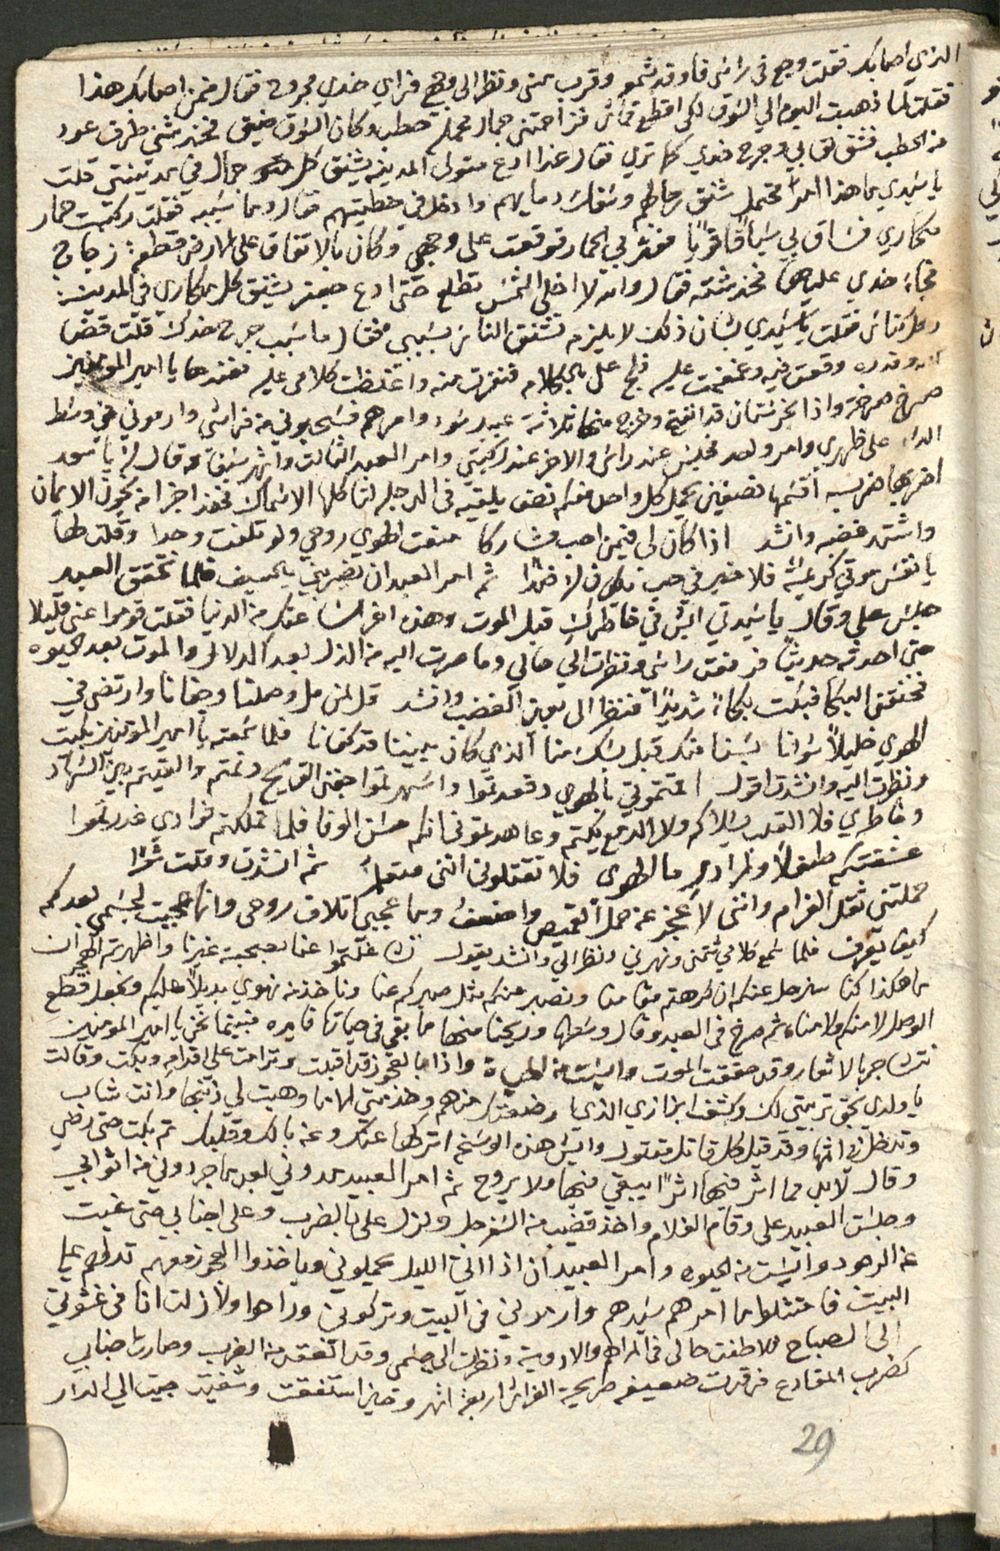 الذي اصابك فقلت وجع في راسي فاوقد شمعه وقرب مني ونظر الى وجهي فراي خدي مجروح فقال فمن اصابك هذا
فقلت لما ذهبت اليوم الي السوق لكي اقطع قماش فزاحمتني جمار محمله حطب وكان السوق ضيق فخدشني طرف عود
من الحطب فشق نقابي وجرح خدي كما تري فقال غدا ادع متولي المدينه يشنق كل جمال في مدينتي قلت
يا سيدي ما هذا الامر محتمل شنق رجالهم وسفك دمايهم وادخل في خطيتهم فقال وما سببه فقلت ركبت حمار
مكاري فساق بي سياقا قويا فعثر بي الحمار فوقعت علي وجهي وكان بالاتفاق على الارض قطعة زجاج
فجاء خدي عليها فخدشته فقال والله لا اخلي الشمس تطلع حتى ادع جعفر يشنق كل مكاري في المدينه
وكل كناس فقلت يا سيدي لشان ذلك لا يلزم تشنق الناس بسببي فقال ما سبب جرح خدك قلت قضا
الله وقدره وقعت فيه وغمغمت عليه فلح على بالكلام فنفرت منه واغلظت كلامي عليه فعندها يا امير المومنين
صرخ صرخة واذا بخرستان قد انفتح وخرج منها ثلاثة عبيد سود وامرهم فسحبوني من فراشي وارموني في وسط
الدار على ظهري وامر واحد فجلس عند راسي والاخر عند ركبتي وامر العبد الثالث واشهر سيفا وقال له يا سعد
اضربها ضربه اقسمها نصفين يحمل كل واحد منكم نصف يلقيه في الدجله لتاكلها الاسماك فهذا جزا من يخون الايمان
واشتد غضبه وانشد اذا كان لي فيمن احب مشاركا منعت الهوي روحي ولو تلفت وجدا وقلت لها
يا نفس موتي كريمة فلا خير في حب يكون له ضدا ثم امر العبد ان يضربني بالسيف فلما تحقق العبد
جلس علي وقال يا سيدتي ايش في خاطرك قبل الموت وهذه اخر ساعتك من الدنيا فقلت قوموا عني قليلا
حتى احدثه حديثا فرفعت راسي ونظرت الي حالي وما صرت اليه من الذل بعد الدلال والموت بعد الحيوه
فخنقني البكا فبكيت بكاء شديدا فنظر الى بعين الغضب وانشد قل لمن مل وصلنا وجفانا وارتضى في
الهوي خليلا سوانا بسنا منك قبل بسك منا الذي كان بيننا قد كفانا فلما سمعته يا امير المومنين بكيت
ونظرت اليه وانشدت اقول اقمتموني بالهوي وقعدتموا واسهرتموا جفني القريح ونمتم والقيتم بين السهاد
وخاطري فلا القلب يسلاكم ولا الدمع يكتم وعاهدتموني انكم حسن الوفا فلما تملكتم فوادي غدرتموا
عشقتكم طفلا ولم ادر ما الهوى فلا تقتلوني انني متعلم ثم انشدت وقلت شعرا
حملتني ثقل الغرام وانني لاعجز عن حمل القميص واضعف وما عجبي اتلاف روحي وانما عجبت لجسمي بعدكم
كيف يعرف فلما سمع كلامي شتمني ونهرني ونظر الي وانشد يقول تشاغلتموا عنا بصحبة غيرنا واظهرتم الهجران
ما هكذا كنا سنرحل عنكم ان كرهتم مقامنا ونصبر عنكم مثل صبركم عنا وناخذ من نهوي بديلا عليكم ونجعل قطع
الوصل لا منكم ولا منا ثم صرخ في العبد وقال وسطها وريحنا منها ما بقي في حياتها فايده فبينما نحن يا امير المومنين
نتناجر بالاشعار وقد حققت الموت وايست من الحياة واذا بالعجوز قد اقبلت وترامت على اقدامه وبكت وقالت
يا ولدي بحق تربيتي لك وكشف ابزازي الذي رضعتك منهم وخدمتي لها ما وهبت لي ذنبها وانت شاب
وتدخل في اثمها وقد قيل كل قاتل مقتول وايش هذه الوسخه اتركها عنك وعن بالك وقلبك ثم بكت حتى رضي
وقال لا بد ما اثر فيها اثرا يبقي فيها ولا يروح ثم امر العبيد مدوني بعد ما جردوني من اثوابي
وجلس العبيد على وقام الغلام واخذ قضيب من السفرجل ونزل على بالضرب وعلى اجنابي حتى غبت
عن الوجود وايست من الحيوه وامر العبيد ان اذا اتى الليل يحملوني وياخذوا العجوز معهم تدلهم على
البيت فامتثلوا ما امرهم سيدهم وارموني في البيت وتركوني وراحوا ولا زلت انا في غشوتي
الى الصباح فلاطفت حالى في المراهم والادوية ونظرت الى جسمي وقد اتفقد من الضرب وصارت اجنابي
كضرب المقارع فرقدت ضعيفه طريحة الفراش اربعة اشهر وحين استفقت وشفيت جيت الي الدار
29